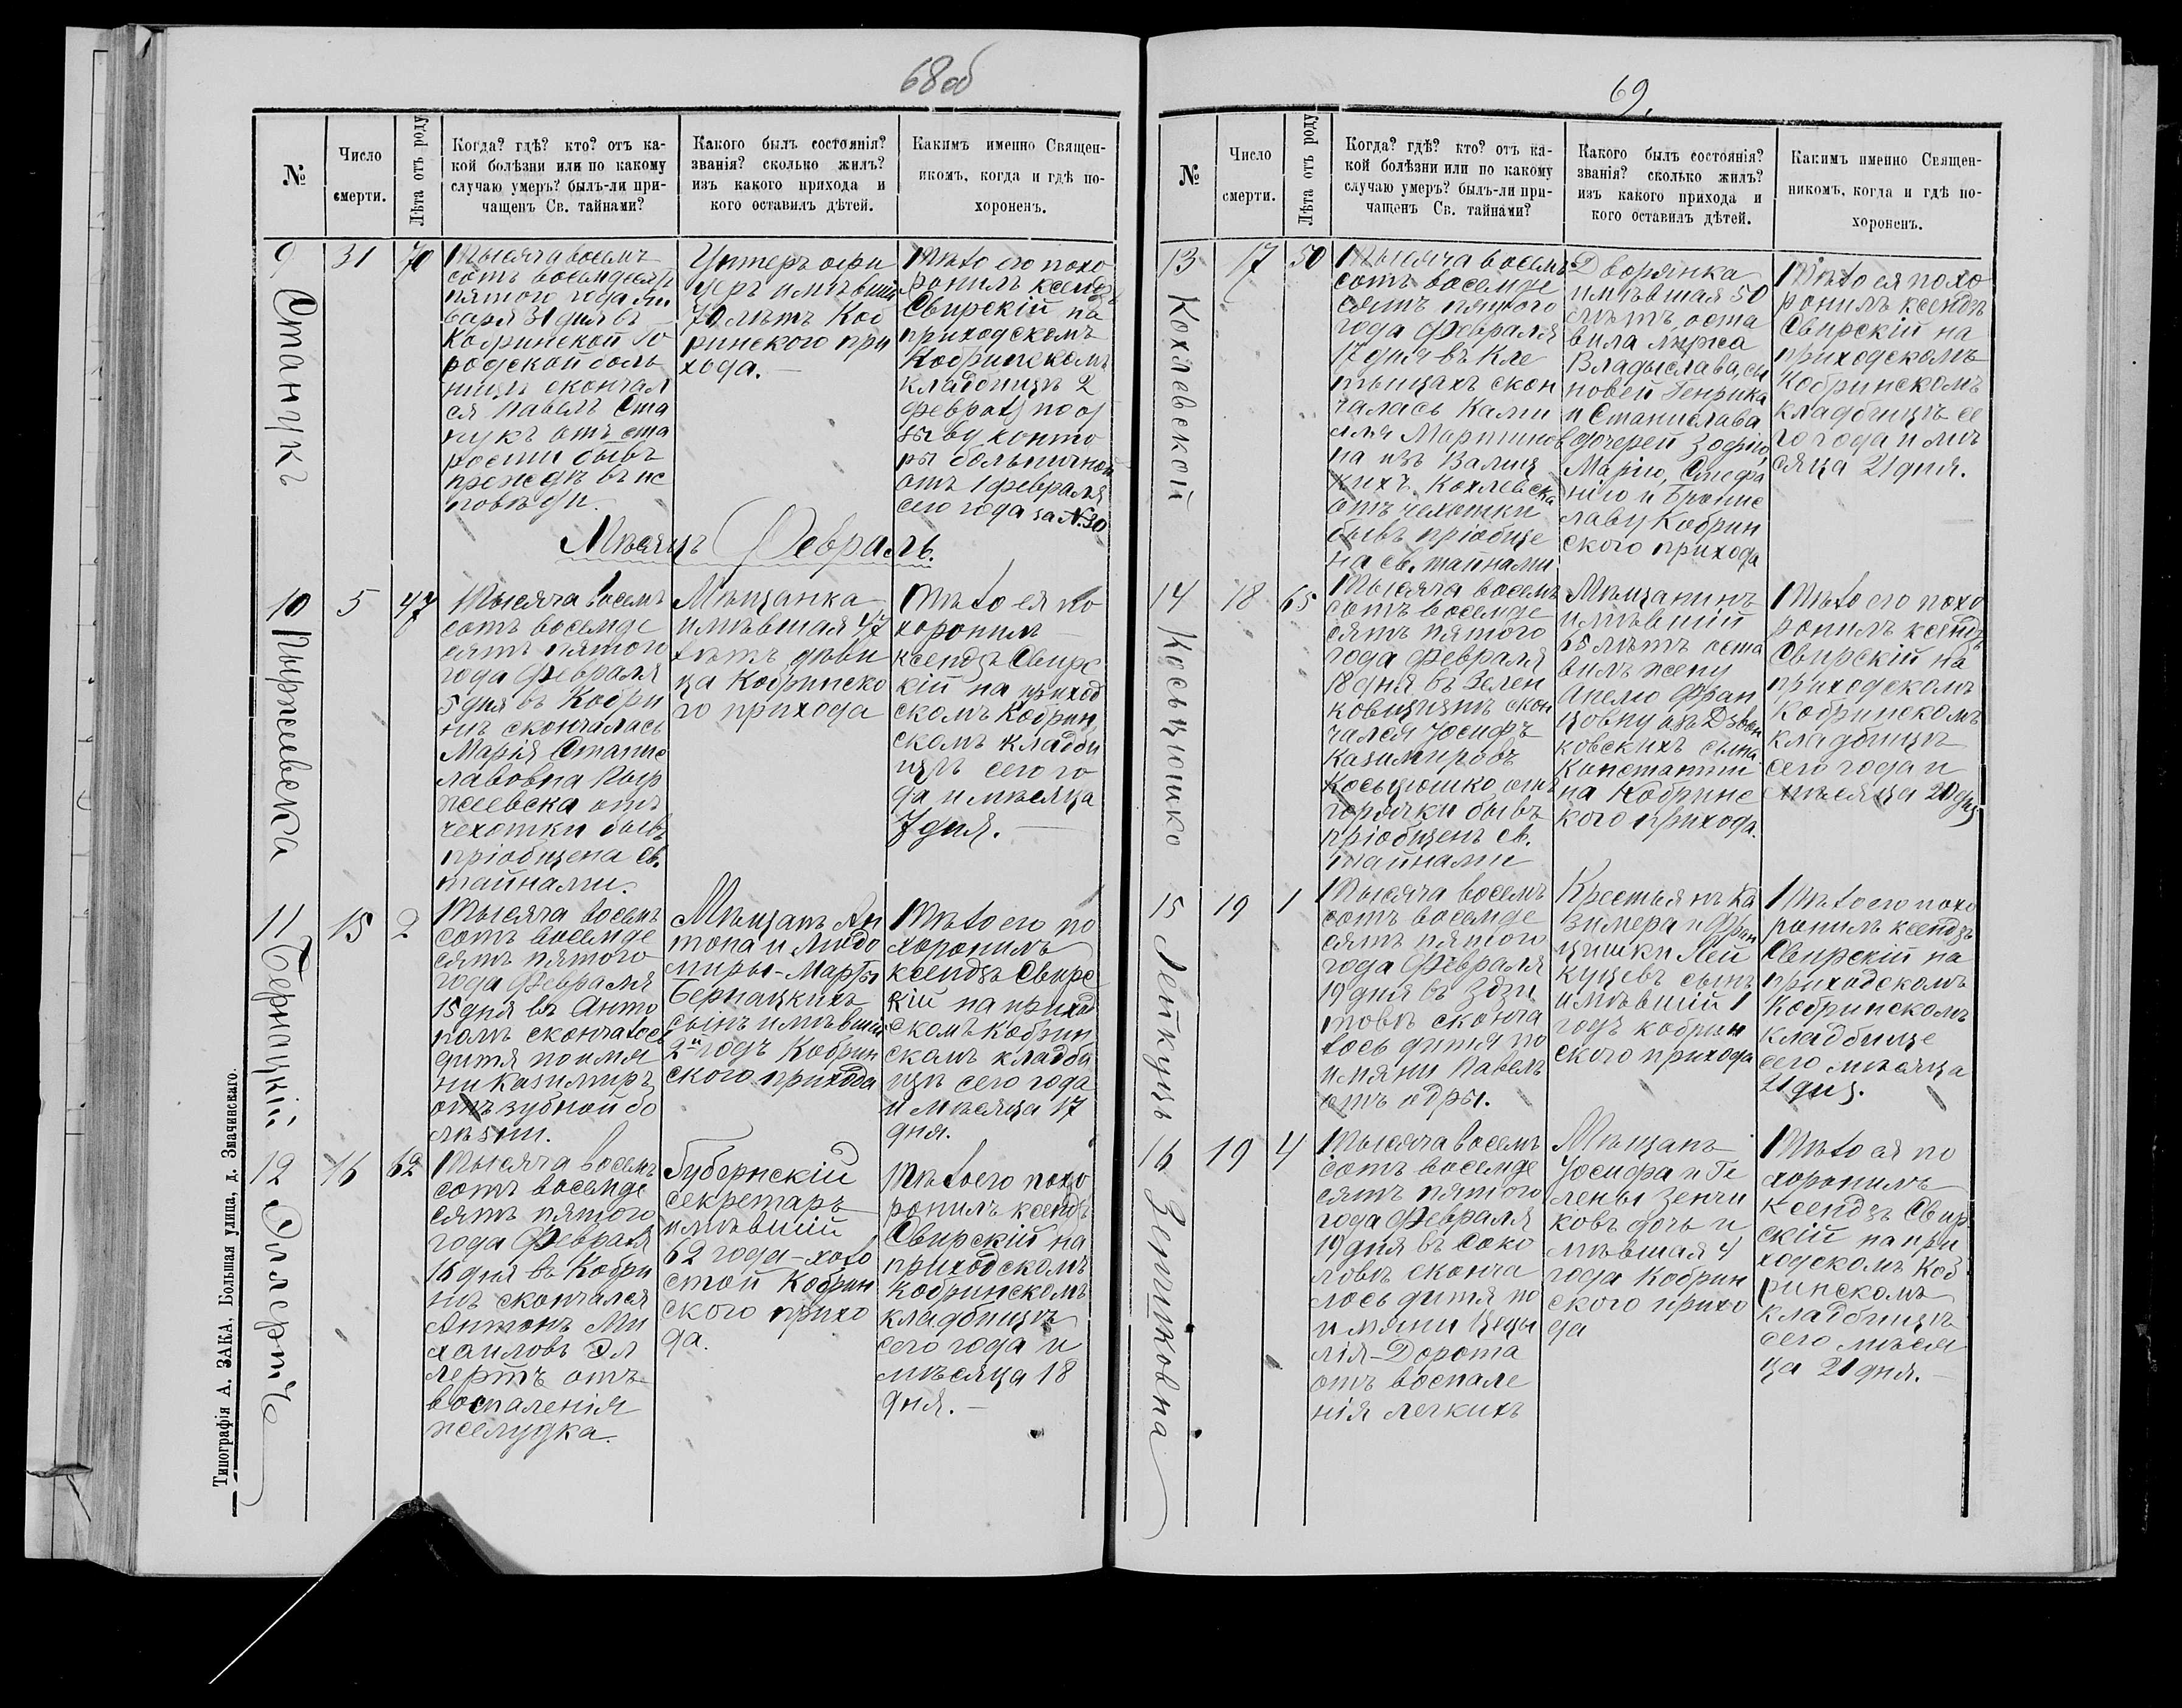 68об
№
Число
смерти.
Лѣта отъ роду
Когда? гдѣ? кто? отъ ка-
кой болѣзни или по какому
случаю умеръ? былъ-ли при-
чащенъ Св. тайнами?
Какого былъ состоянія?
званія? сколько жилъ?
изъ какого прихода и
кого оставилъ дѣтей.
Какимъ именно Священ-
никомъ, когда и гдѣ по-
хороненъ.
9
Станукъ
31
70
Тысяча восемь
сотъ восемдесятъ
пятого года Ян
варя 31 дня въ
Кобринской Го
родской боль
ницѣ скончал
ся Павелъ Ста
нукъ отъ ста
рости бывъ
прежде въ ис
повѣди.
Унтеръ офи
церъ имѣвшій
70 лѣтъ Коб
ринского при
хода.
Тѣло его похо
ронилъ ксендзъ
Свирскій на
приходскомъ
Кобринскомъ
кладбищѣ 2
февраля по от
зыву конто
ры больничной
отъ 1 февраля
сего года за №30
Мѣсяцъ Февраль.
10
Пыржевска
5
47
Тысяча восемь
сотъ восемде
сятъ пятого
года Февраля
5 дня въ Кобри
нѣ скончалась
Марія Станис
лавовна Пыр
жевска отъ
чехотки бывъ
пріобщена св.
тайнами.
Мѣщанка
имѣвшая 47
лѣтъ, дѣви
ца Кобринско
го прихода
Тѣло ея по
хоронилъ
ксендзъ Свирс
кій на приход
скомъ Кобрин
скомъ кладби
щѣ сего го
да и мѣсяца
7 дня.
11
Бернацкій
15
2
Тысяча восемь
сотъ восемде
сятъ пятого
года Февраля
15 дня въ Анто
полѣ скончалось
дитя по имя
ни Казимиръ
отъ зубной бо
лѣзни.
Мѣщанъ Ан
тона и Людо
миры-Марты
Бернацкихъ
сынъ имѣвшій
2й годъ Кобрин
ского прихода
Тѣло его по
хоронилъ
ксендзъ Свирс
кій на приход
скомъ Кобрин
скомъ кладби
щѣ сего года
и мѣсяца 17
дня.
12
Эллертъ
16
62
Тысяча восемь
сотъ восемде
сятъ пятого
года Февраля
16 дня въ Кобри
нѣ скончался
Антонъ Ми
хаиловъ Эл
лертъ отъ
воспаленія
желудка.
Губернскій
секретарь
имѣвшій
62 года-холо
стой Кобрин
ского прихо
да.
Тѣло его похо
ронилъ ксендзъ
Свирскій на
приходскомъ
Кобринскомъ
кладбищѣ
сего года и
мѣсяца 18
дня.
Типографія А. ЗАКА, Большая улица, д. Змачинскаго.
69.
№
Число
смерти.
Лѣта отъ роду
Когда? гдѣ? кто? отъ ка-
кой болѣзни или по какому
случаю умеръ? былъ-ли при-
чащенъ Св. тайнами?
Какого былъ состоянія?
званія? сколько жилъ?
изъ какого прихода и
кого оставилъ дѣтей.
Какимъ именно Священ-
никомъ, когда и гдѣ по-
хороненъ.
13
Кохлевской
17
50
Тысяча восемь
сотъ восемде
сятъ пятого
года Февраля
17 дня въ Кле
тыщахъ скон
чалась Ками
лля Мартинов
на изъ Валиц
кихъ Кохлевска
отъ чехотки
бывъ пріобще
на св. тайнами
Дворянка
имѣвшая 50
лѣтъ, оста
вила мужа
Владыслава, сы
новей Генрика
и Станислава
дочерей Зофію,
Марію, Стефа
нію и Бронис
лаву Кобрин
ского прихода
Тѣло ея похо
ронилъ ксендзъ
Свирскій на
приходскомъ
Кобринскомъ
кладбищѣ се
го года и мѣ
сяца 21 дня.
14
Косьцюшко
18
65
Тысяча восемь
сотъ восемде
сятъ пятого
года Февраля
18 дня въ Зелен
ковщизнѣ скон
чался Іосифъ
Казимировъ
Косьцюшко отъ
горячки бывъ
пріобщенъ св.
тайнами
Мѣщанинъ
имѣвшій
65 лѣтъ оста
вилъ жену
Анелю Фран
цовну изъ
ковскихъ сына
Константи
на Кобринс
кого прихода.
Тѣло его похо
ронилъ ксендзъ
Свирскій на
приходскомъ
Кобринскомъ
кладбищѣ
сего года и
мѣсяца 20 дня.
15
Лейкуцъ
19
1
Тысяча восемь
сотъ восемде
сятъ пятого
года Февраля
19 дня въ Здзи
товѣ сконча
лось дитя по
имяни Павелъ
отъ одры.
Крестьянъ Ка
зимера и Фран
цишки Лей
куцевъ сынъ
имѣвшій 1
годъ кобрин
ского прихода
Тѣло его похо
ронилъ ксендзъ
Свирскій на
приходскомъ
Кобринскомъ
кладбище
сего мѣсяца
21 дня.
16
Зенчиковна
19
4
Тысяча восемь
сотъ восемде
сятъ пятого
года Февраля
19 дня въ Соко
ловѣ сконча
лось дитя по
имяни Цецы
лія-Дорота
отъ воспале
нія легкихъ
Мѣщанъ
Іосифа и Ге
лены Зенчи
ковъ дочь и
мѣвшая 4
года Кобрин
ского прихо
да
Тѣло ея по
хоронилъ
ксендзъ Свир
скій на при
ходскомъ Коб
ринскомъ
кладбищѣ
сего мѣся
ца 21 дня.